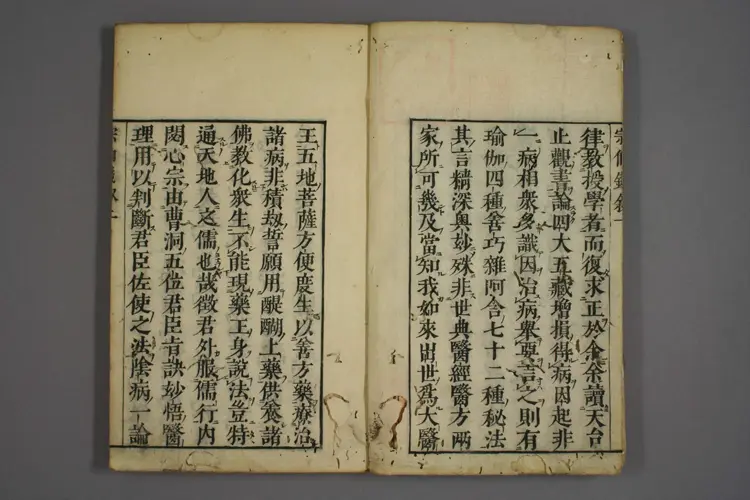 律教授學者而復求正於余余讀天台
止觀書論四大五藏增損得病因起非
一病相衆多識因治病衆要言之則有
瑜伽四種善巧雜阿含七十二種秘法
其言精深奥妙殊非世典醫經醫方兩
家所可幾及當知我如來出世爲大醫
王五地菩薩方便度生以善方藥療治
諸病非積刼誓願用醍醐上藥供養諸
佛教化衆生不能現藥王身說法豈特
通天地人之儒也哉徴君外服儒行内
閟心宗由曹洞五位君臣肯訣妙悟醫
理用以判斷君臣佐使之法陰病一論